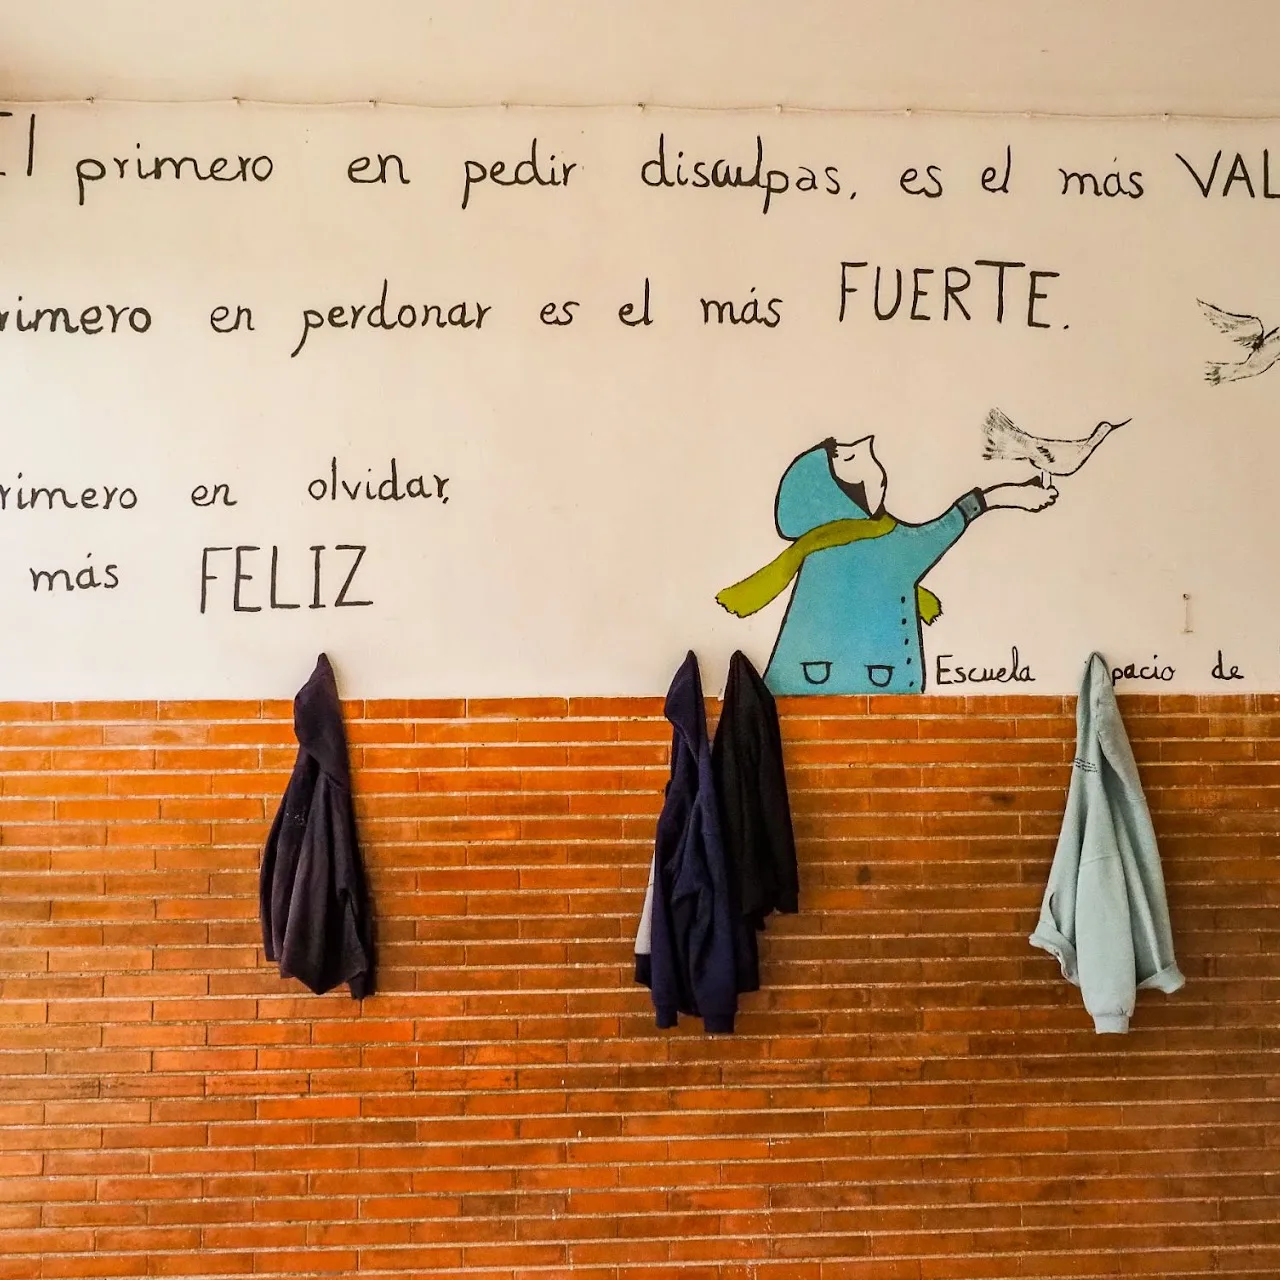 El primero en pedir disculpas, es el más VAL
rimero en perdonar es el más FUERTE.
rimero en olvidar,
más FELIZ
Escuela pacio de